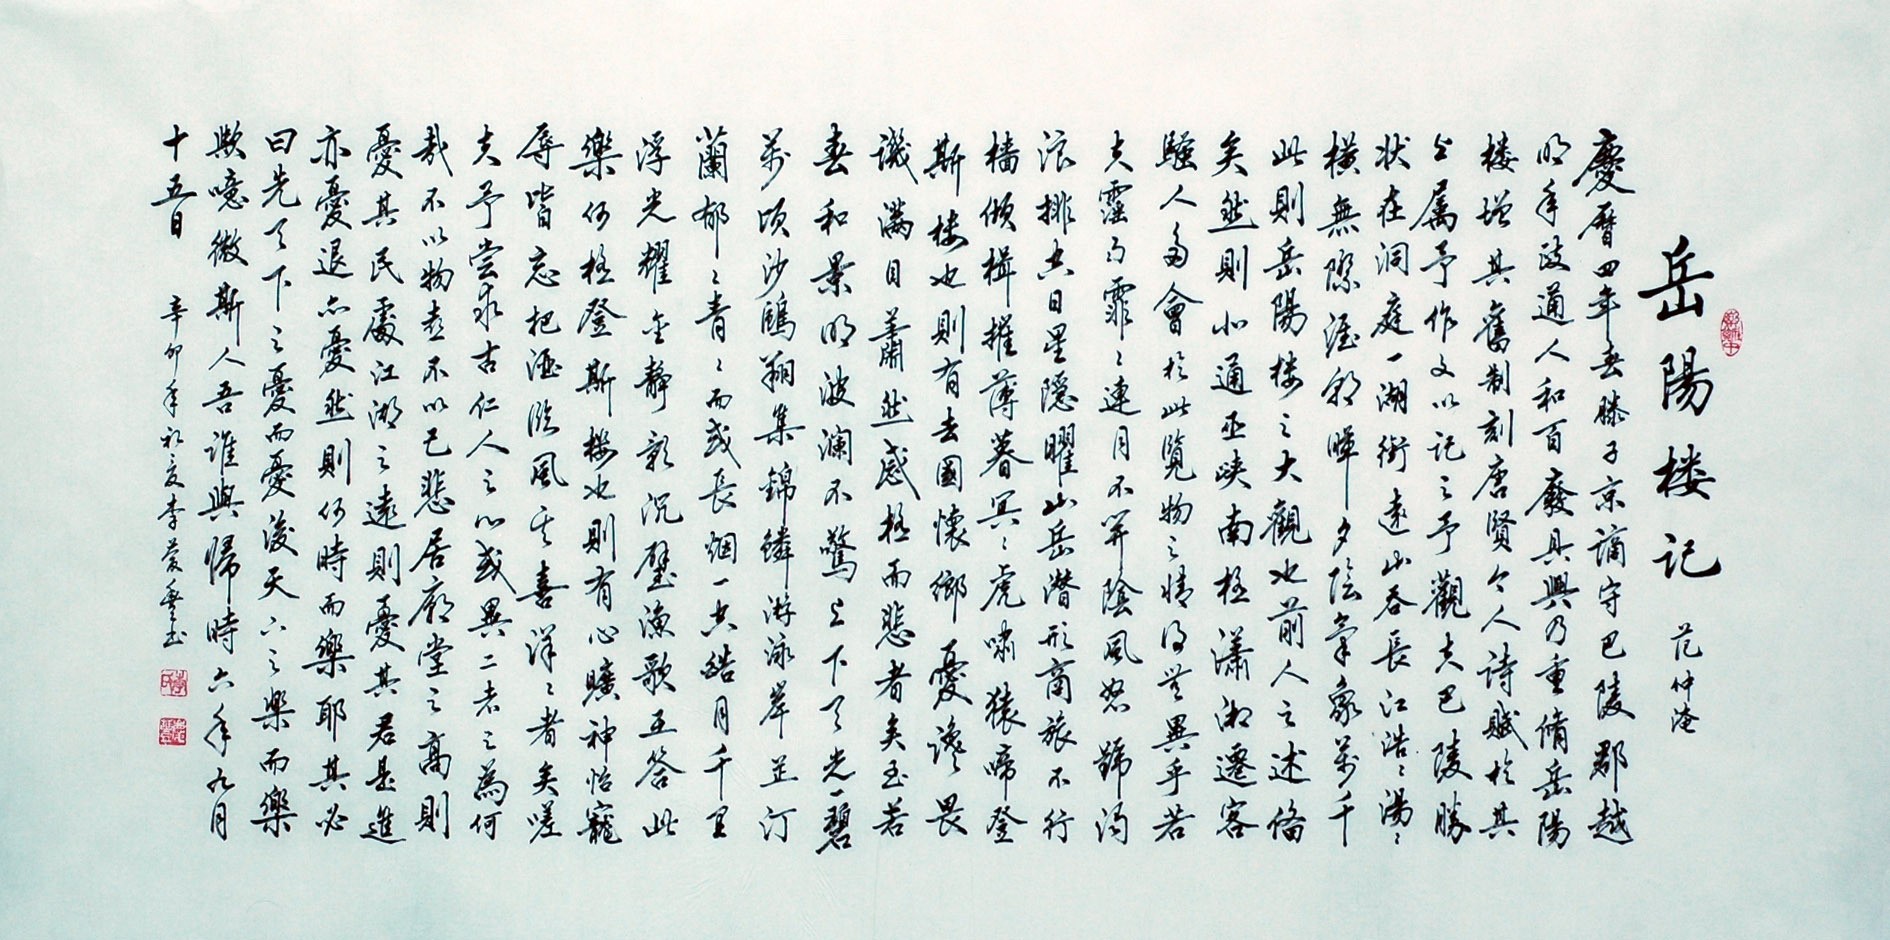 岳陽楼记
范仲淹
慶曆四年春滕子京謫守巴陵郡越
明年政通人和百廢具興乃重脩岳陽
楼增其舊制刻唐賢今人詩賦於其
上属予作文以记之予觀夫巴陵勝
状在洞庭一湖銜遠山吞長江浩〻湯〻
橫無際涯朝暉夕陰氣象萬千
此則岳陽楼之大觀也前人之述備
矣然則北通巫峡南極瀟湘遷客
騷人多會於此覽物之情得無異乎若
夫霪雨霏〻連月不開陰風怒號濁
浪排空日星隱曜山岳潜形商旅不行
樯傾楫摧薄暮冥〻虎嘯猿啼登
斯楼也則有去國懷鄉憂讒畏
譏满目蕭然感極而悲者矣至若
春和景明波澜不驚上下天光一碧
萬頃沙鷗翔集錦鱗游泳岸芷汀
蘭郁〻青〻而或長烟一空皓月千里
浮光耀金静影沉璧漁歌互答此
樂何極登斯楼也則有心曠神怡寵
辱皆忘把酒臨風其喜洋〻者矣嗟
夫予嘗求古仁人之心或異二者之為何
哉不以物喜不以己悲居廟堂之高則
憂其民處江湖之遠則憂其君是進
亦憂退亦憂然則何時而樂耶其必
曰先天下之憂而憂後天下之樂而樂
歟噫微斯人吾誰與歸時六年九月
十五日
辛卯年初夏李